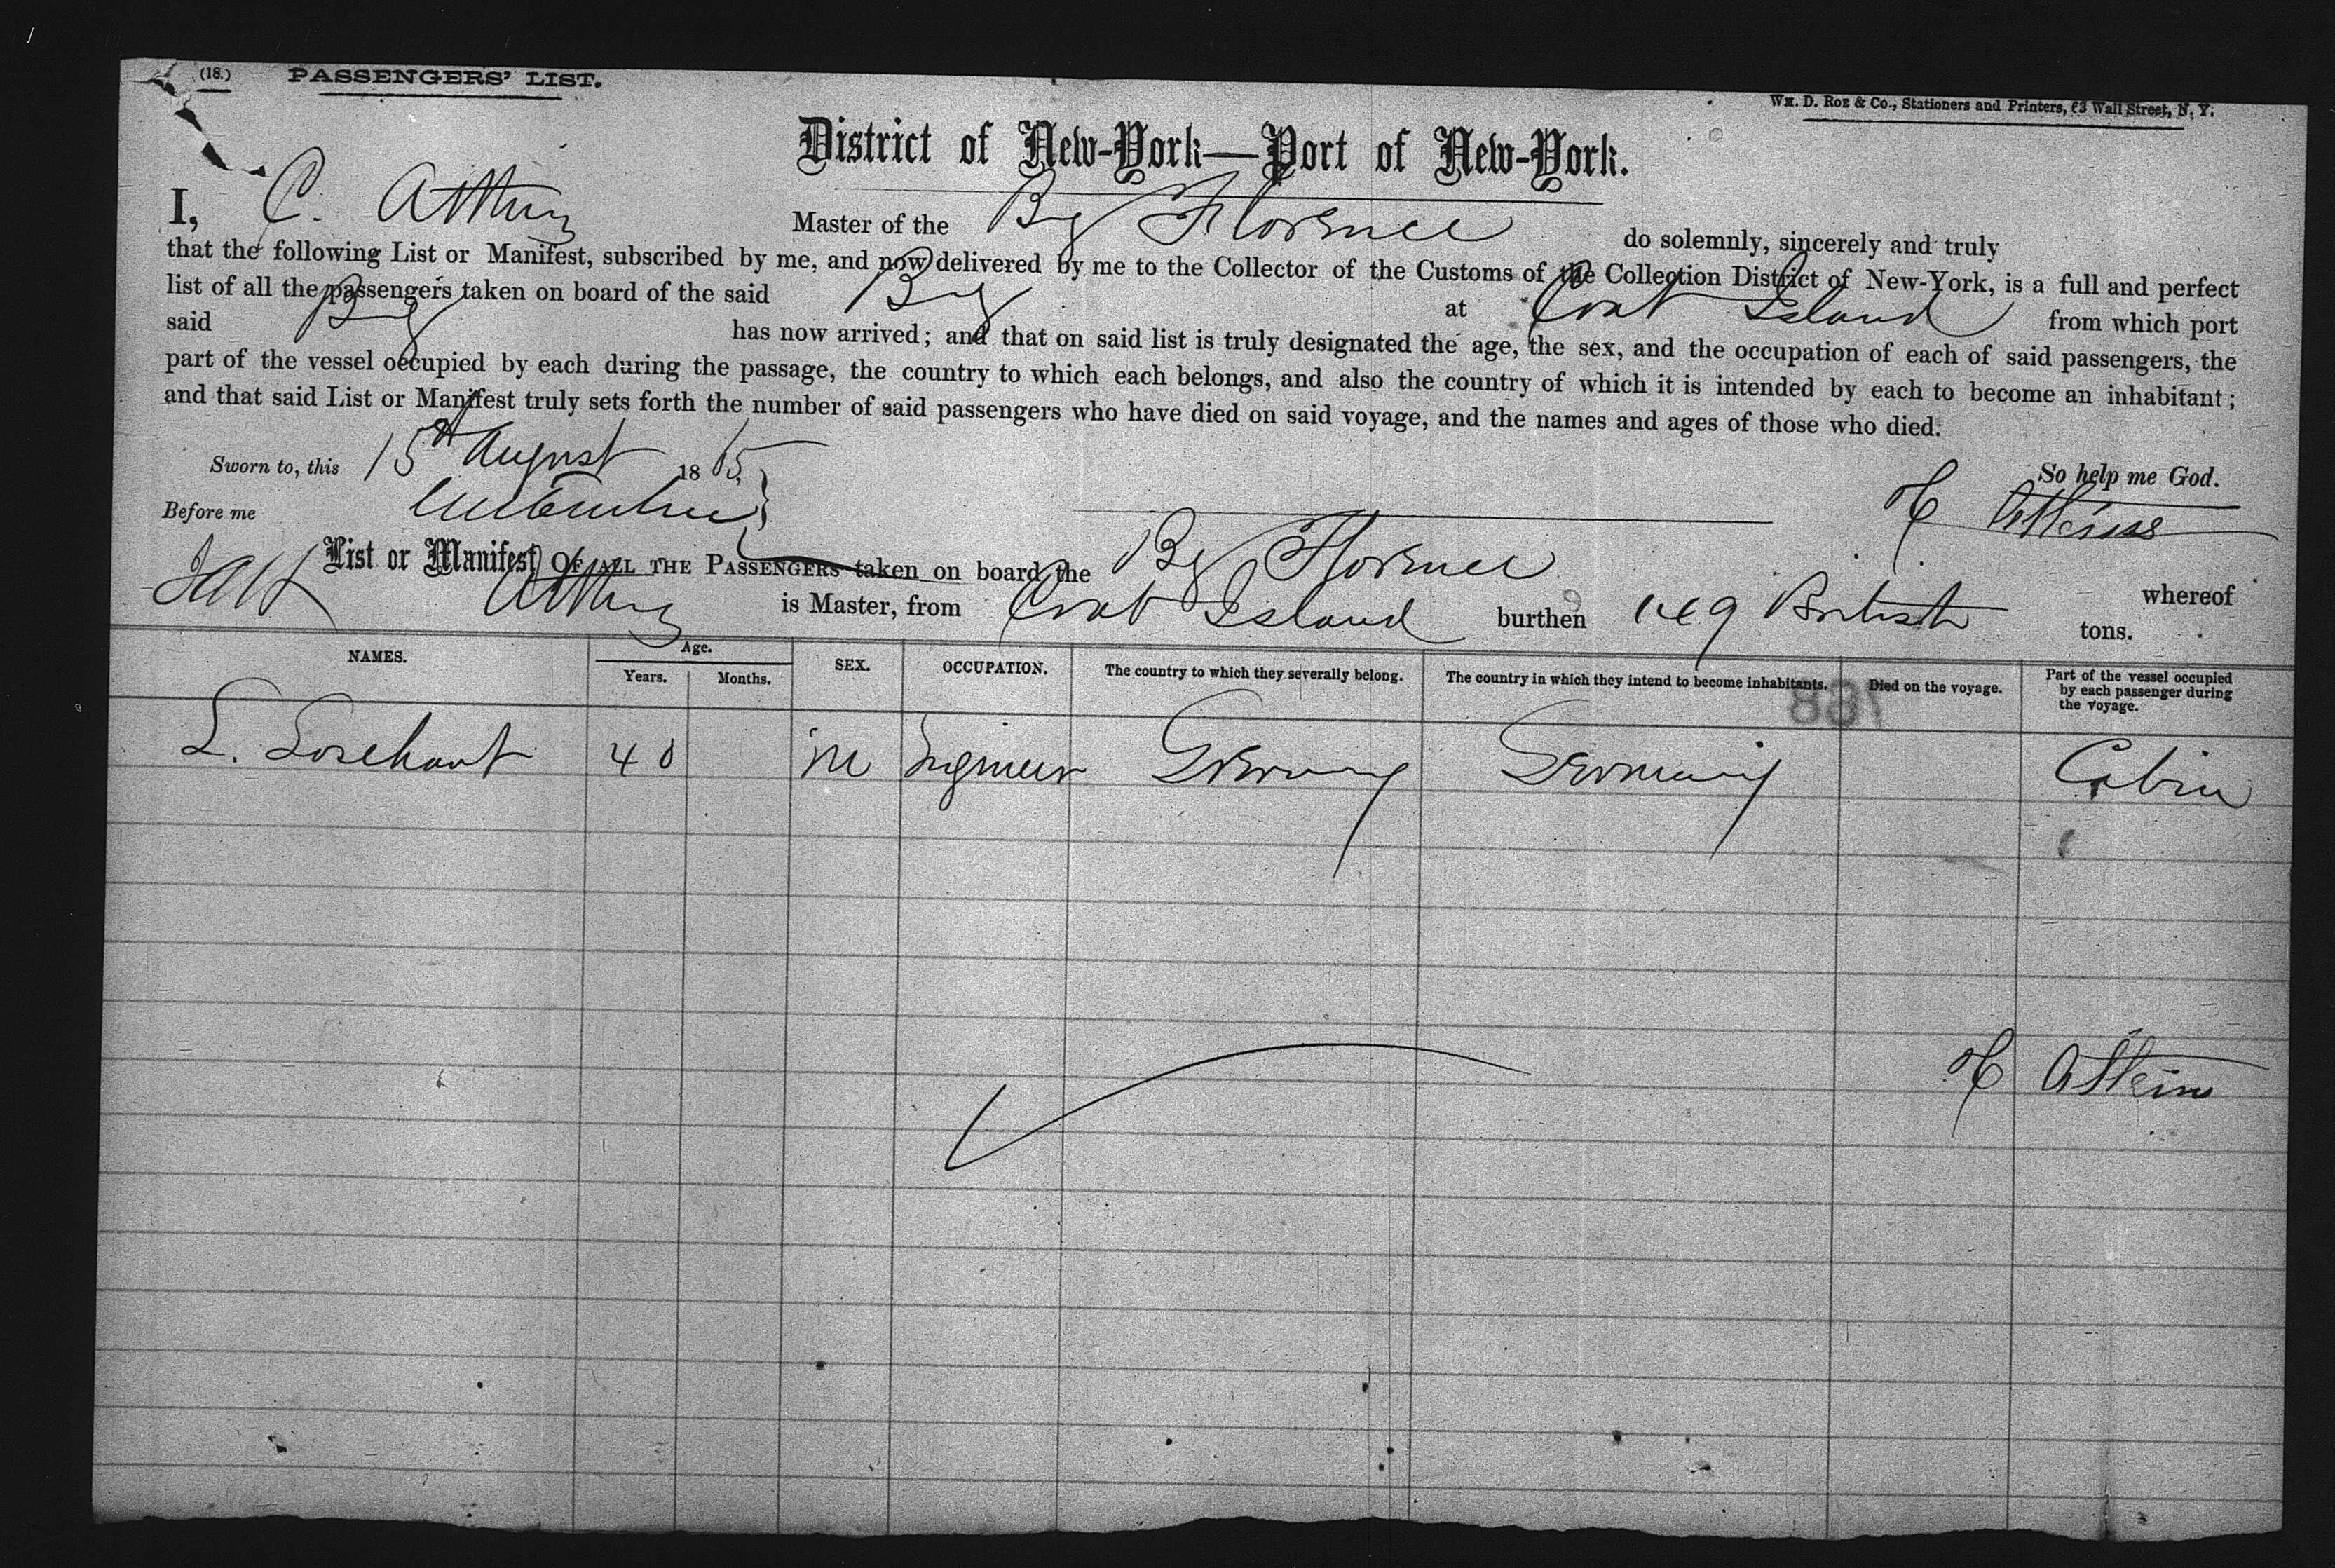 (18.) PASSENGERS' LIST.
Wm. D. Roe & Co., Stationers and Printers, 63 Wall Street, N. Y.
District of New-York—Port of New-York.
I, C. Master of the Bg Florence do solemnly, sincerely and truly
that the following List or Manifest, subscribed by me, and now delivered by me to the Collector of the Customs of the Collection District of New-York, is a full and perfect
list of all the passengers taken on board of the said Bg at Island from which port
said Bg has now arrived; and that on said list is truly designated the age, the sex, and the occupation of each of said passengers, the
part of the vessel occupied by each during the passage, the country to which each belongs, and also the country of which it is intended by each to become an inhabitant;
and that said List or Manifest truly sets forth the number of said passengers who have died on said voyage, and the names and ages of those who died.
Sworn to, this 15th August 1865 So help me God.
Before me
List or Manifest OF ALL THE PASSENGERS taken on board the Bg Florence whereof
is Master, from Island burthen 149 British tons.
NAMES. Age. Years. Months. SEX. OCCUPATION. The country to which they severally belong. The country in which they intend to become inhabitants. Died on the voyage. Part of the vessel occupied by each passenger during the voyage.
L. 40 M Engineer Germany Germany Cabin
Atkins